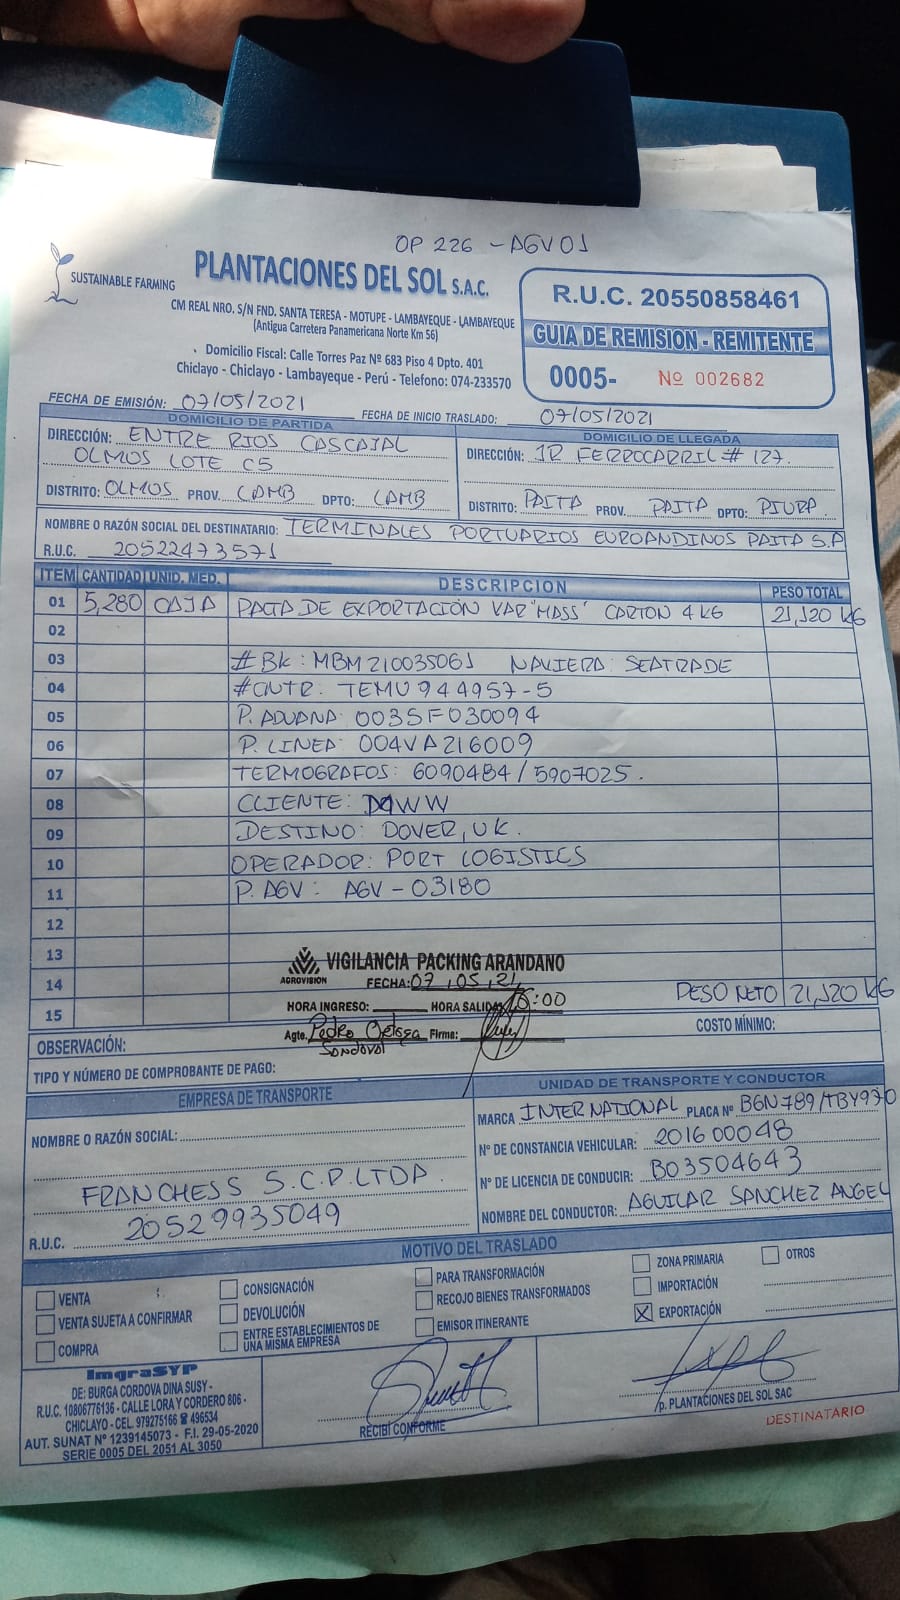 OP 226 - AGV01
SUSTAINABLE FARMING
PLANTACIONES DEL SOL S.A.C.
CM REAL NRO. S/N FND. SANTA TERESA - MOTUPE - LAMBAYEQUE - LAMBAYEQUE
(Antigua Carretera Panamericana Norte Km 56)
Domicilio Fiscal: Calle Torres Paz Nº 683 Piso 4 Dpto. 401
Chiclayo - Chiclayo - Lambayeque - Perú - Telefono: 074-233570
R.U.C. 20550858461
GUIA DE REMISION - REMITENTE
0005- Nº 002682
FECHA DE EMISIÓN: 07/05/2021 FECHA DE INICIO TRASLADO: 07/05/2021
DOMICILIO DE PARTIDA
DIRECCIÓN: ENTRE RIOS CASCAJAL
OLMOS LOTE C5
DISTRITO: OLMOS PROV. LAMB DPTO: LAMB
DOMICILIO DE LLEGADA
DIRECCIÓN: JR FERROCARRIL # 127.
DISTRITO: PAITA PROV. PAITA DPTO: PIURA
NOMBRE O RAZÓN SOCIAL DEL DESTINATARIO: TERMINALES PORTUARIOS EUROANDINOS PAITA S.A
R.U.C. 20522473571
ITEM CANTIDAD UNID. MED. DESCRIPCION PESO TOTAL
01 5,280 CAJA PALTA DE EXPORTACIÓN VAR "HASS" CARTON 4 KG 21,120 KG
02
03 #BK: MBM210035061 NAVIERA: SEATRADE
04 #CNTR: TEMU944957-5
05 P. ADUANA: 0035F030094
06 P. LINEA: 004VA216009
07 TERMOGRAFOS: 6090484/5907025.
08 CLIENTE: DOWW
09 DESTINO: DOVER, UK.
10 OPERADOR: PORT LOGISTICS
11 P. AGV: AGV-03180
12
13
14 PESO NETO 21,120 KG
15
AGROVISION
VIGILANCIA PACKING ARANDANO
FECHA: 07,05,21
HORA INGRESO: HORA SALIDA: 16:00
Agte. Pedro Firma:
Sandoval
COSTO MÍNIMO:
OBSERVACIÓN:
TIPO Y NÚMERO DE COMPROBANTE DE PAGO:
EMPRESA DE TRANSPORTE
NOMBRE O RAZÓN SOCIAL:
FRANCHESS S.C.P. LTDA.
R.U.C. 20529935049
UNIDAD DE TRANSPORTE Y CONDUCTOR
MARCA INTERNATIONAL PLACA Nº B6N789/TBY970
Nº DE CONSTANCIA VEHICULAR: 201600048
Nº DE LICENCIA DE CONDUCIR: B03504643
NOMBRE DEL CONDUCTOR: AGUILAR SANCHEZ ANGEL
MOTIVO DEL TRASLADO
VENTA
VENTA SUJETA A CONFIRMAR
COMPRA
CONSIGNACIÓN
DEVOLUCIÓN
ENTRE ESTABLECIMIENTOS DE
UNA MISMA EMPRESA
PARA TRANSFORMACIÓN
RECOJO BIENES TRANSFORMADOS
EMISOR ITINERANTE
ZONA PRIMARIA
IMPORTACIÓN
X EXPORTACIÓN
OTROS
ImgraSYP
DE: BURGA CORDOVA DINA SUSY -
R.U.C. 10806776136 - CALLE LORA Y CORDERO 806 -
CHICLAYO - CEL. 979275166 ☎ 496534
AUT. SUNAT Nº 1239145073 - F.I. 29-05-2020
SERIE 0005 DEL 2051 AL 3050
RECIBÍ CONFORME
p. PLANTACIONES DEL SOL SAC
DESTINATARIO